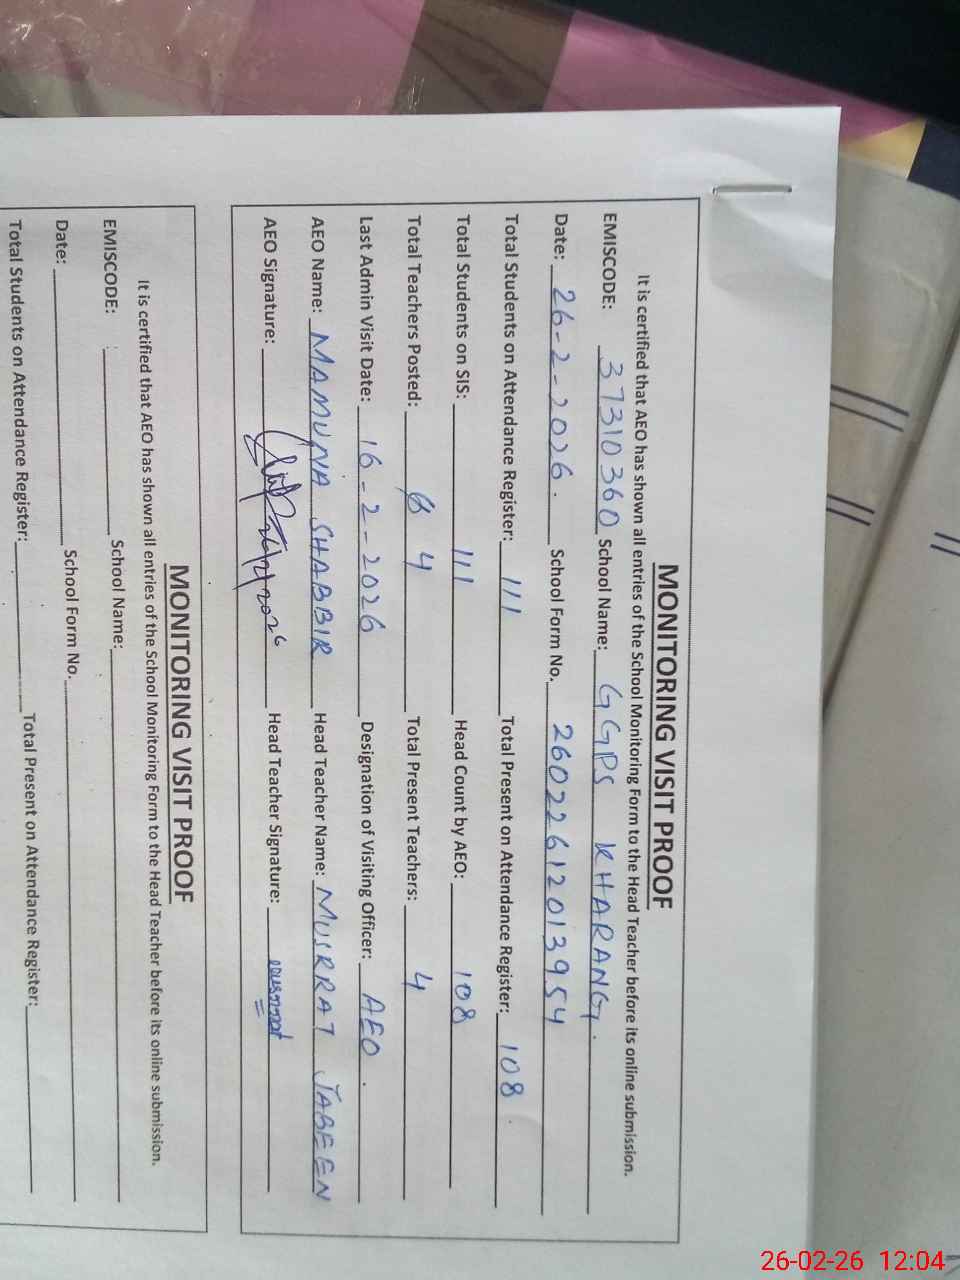 MONITORING VISIT PROOF
It is certified that AEO has shown all entries of the School Monitoring Form to the Head Teacher before its online submission.
EMISCODE: 37310360 School Name: GGPS KHARANG.
Date: 26-2-2026. School Form No. 2602261201 3954
Total Students on Attendance Register: 111 Total Present on Attendance Register: 108.
Total Students on SIS: 111 Head Count by AEO: 108
Total Teachers Posted: 4 Total Present Teachers: 4
Last Admin Visit Date: 16-2-2026 Designation of Visiting Officer: AEO.
AEO Name: MAMUNA SHABBIR Head Teacher Name: MUSRRAT JABEEN
AEO Signature: 26/2/2026 Head Teacher Signature:
MONITORING VISIT PROOF
It is certified that AEO has shown all entries of the School Monitoring Form to the Head Teacher before its online submission.
EMISCODE: School Name:
Date: School Form No.
Total Students on Attendance Register: Total Present on Attendance Register:
26-02-26 12:04